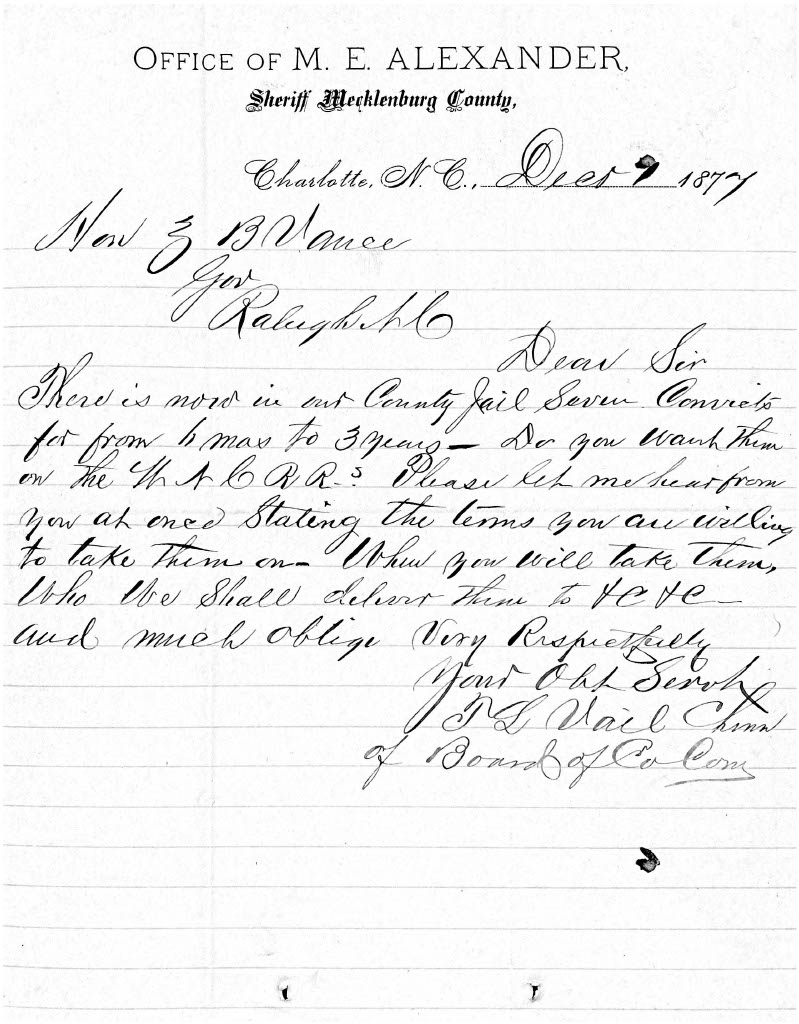 OFFICE OF M. E. ALEXANDER,
Sheriff Mecklenburg County,
Charlotte, N. C., Decr 7 1877
Hon Z B Vance
Gov
Raleigh N C
Dear Sir
There is now in our County Jail Seven Convicts
for from 6 mos to 3 years — Do you want them
on the W N C R R.s Please let me hear from
you at once Stating the terms you are willing
to take them on — When you will take them,
Who We Shall deliver them to &C &C —
and much oblige Very Respectfully
Your Obt Servt
T L Vail Chmn
of Board of Co Com